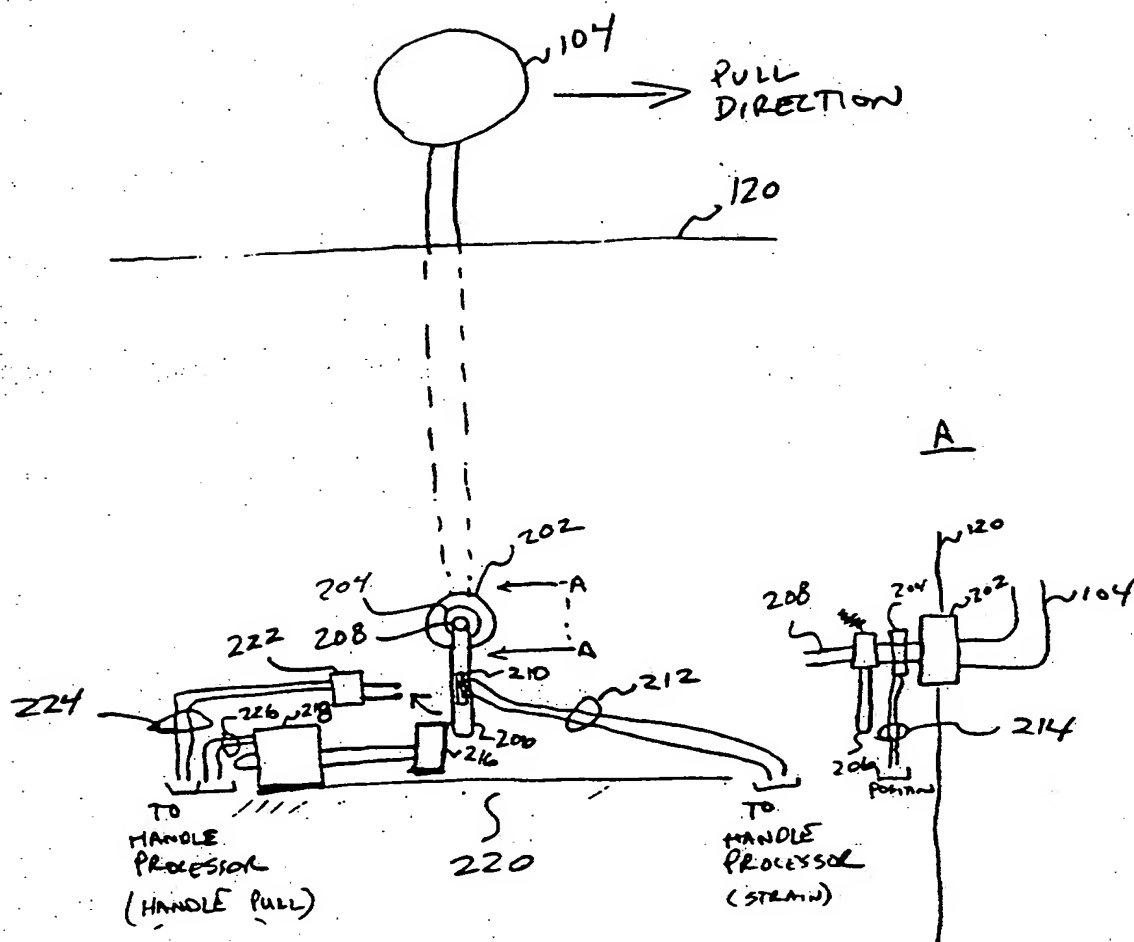 104
PULL
DIRECTION
120
A
202
A
204
208
222
A
210
212
224
226
218
206
216
TO
HANDLE
PROCESSOR
(HANDLE PULL)
220
TO
HANDLE
PROCESSOR
(STRAIN)
120
204
202
104
208
206
214
POSITION